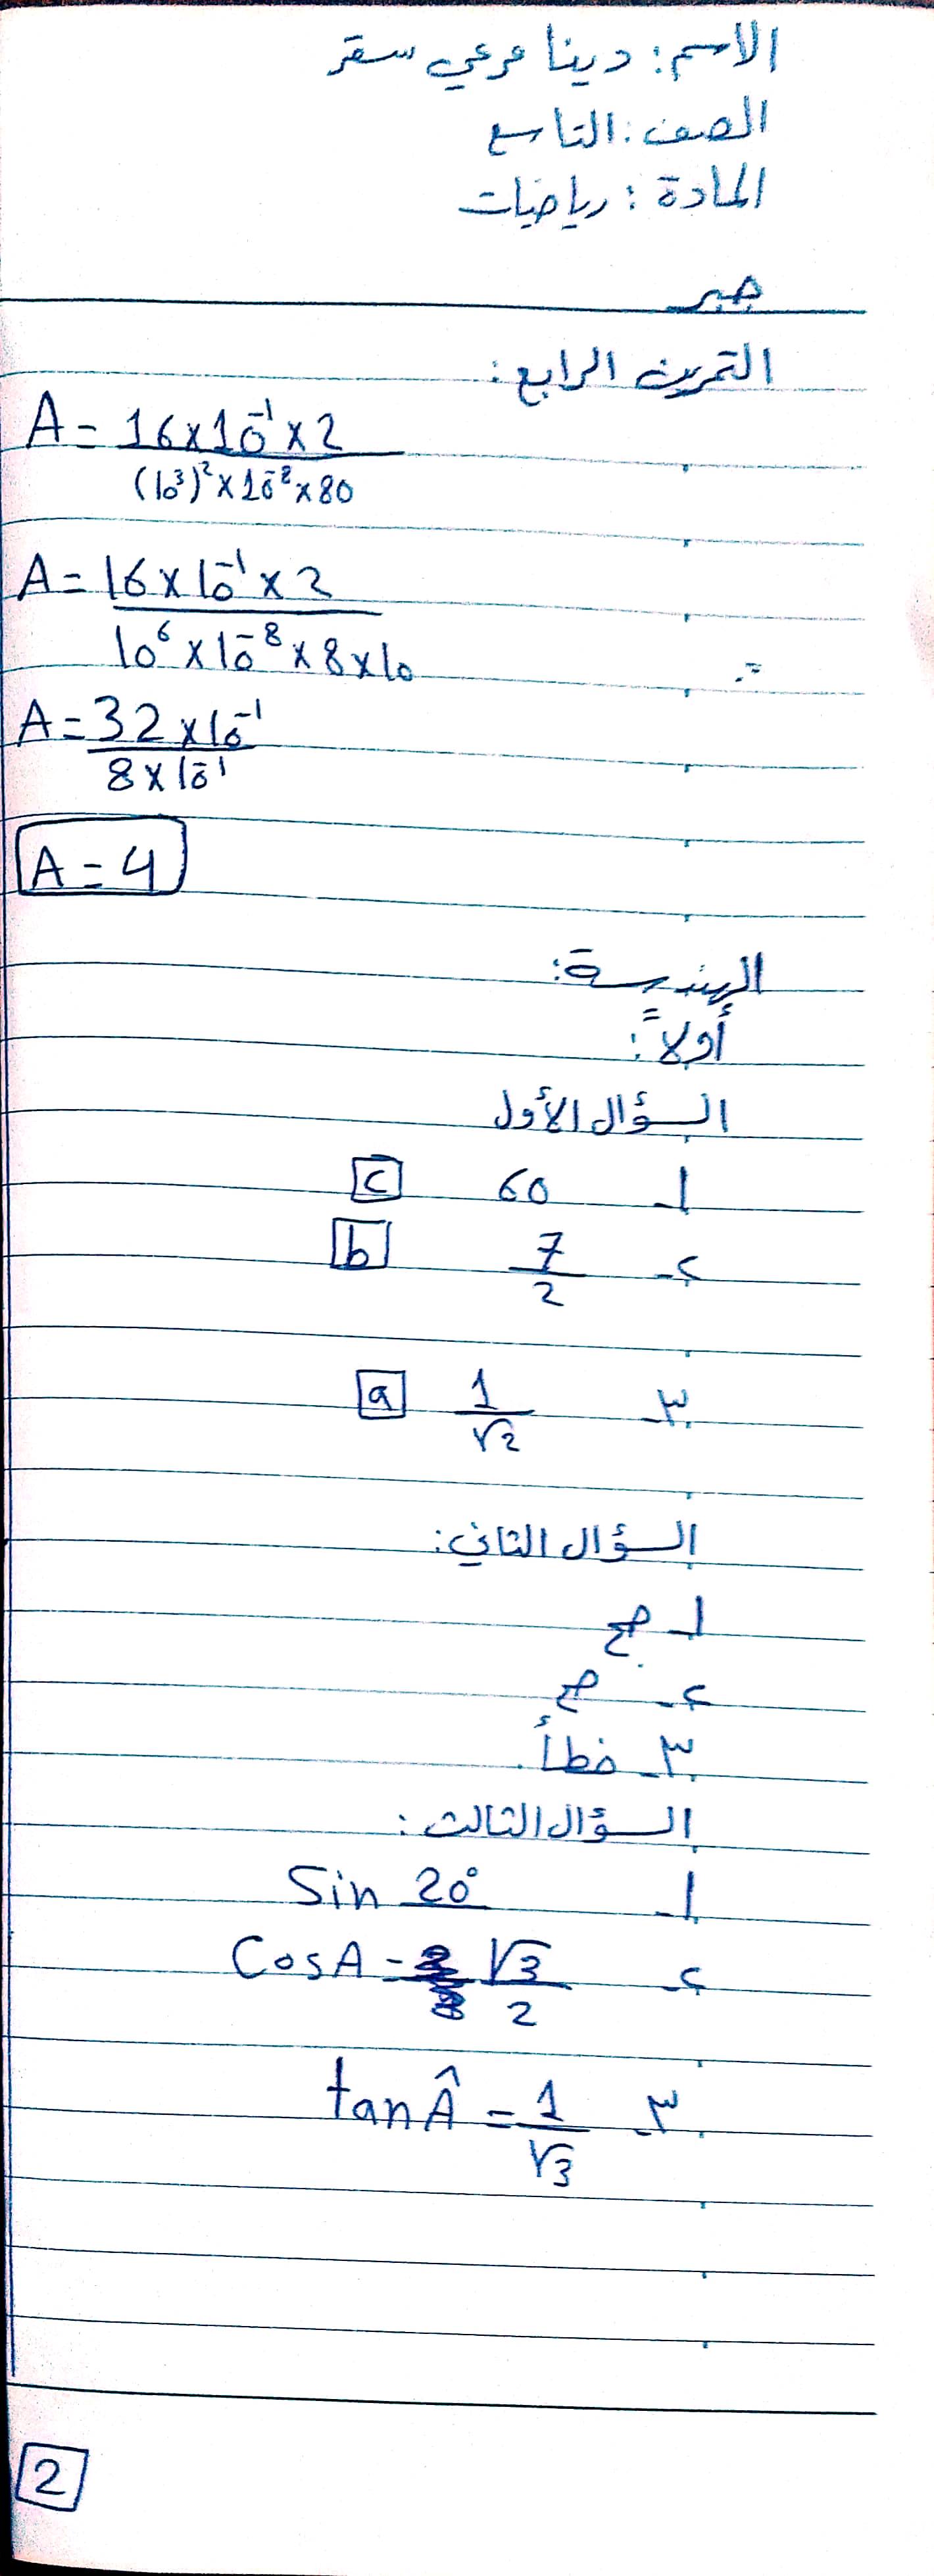 الاسم: دينا مرعي سقر
الصف: التاسع
المادة: رياضيات
جبر
التمرين الرابع:
A = 16×10⁻¹×2 / (10³)²×10⁻⁸×80
A = 16×10⁻¹×2 / 10⁶×10⁻⁸×8×10
A = 32×10⁻¹ / 8×10⁻¹
A = 4
الهندسة:
أولاً:
السؤال الأول
١- 60 c
٢- 7/2 b
٣- 1/√2 a
السؤال الثاني:
١- صح
٢- صح
٣- خطأ.
السؤال الثالث:
١- Sin 20°
٢- CosA = √3/2
٣- tanÂ = 1/√3
2